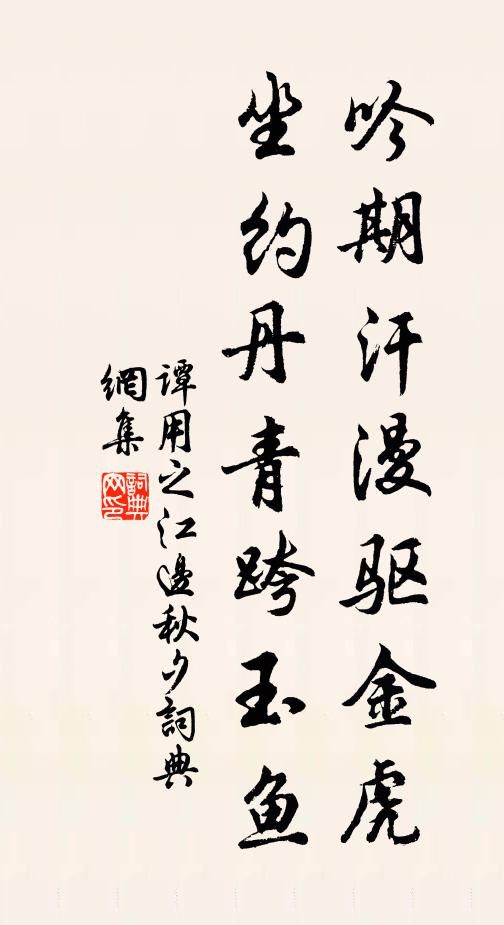 吟期汗漫驱金虎
坐约丹青跨玉鱼
谭用之江邊秋夕詞典
網集
詞典网印